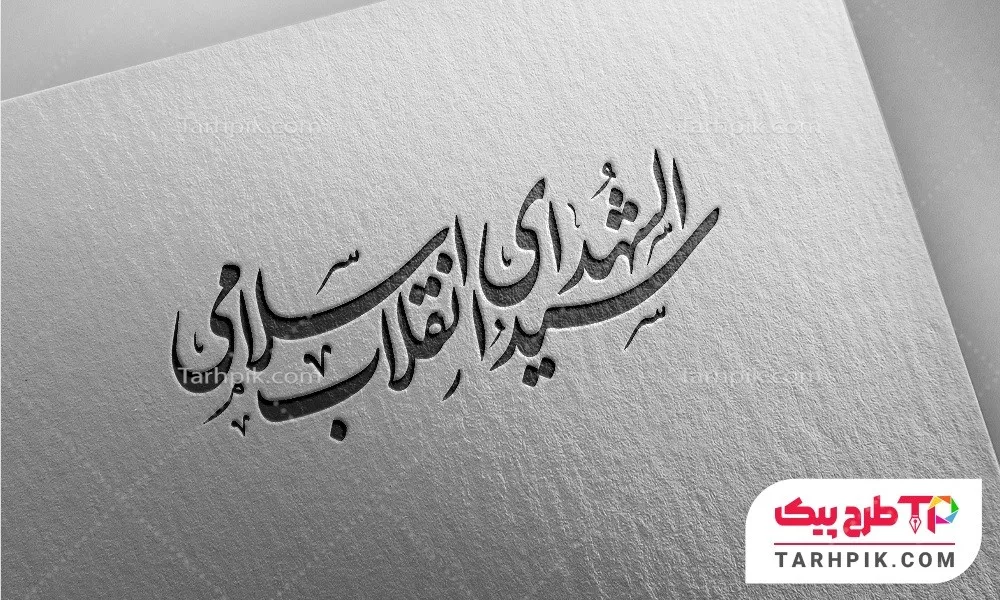 سید الشهدای
انقلاب اسلامی
Tarhpik.com Tarhpik.com
Tarhpik.com Tarhpik.com
طرح پیک TP
TARHPIK.COM